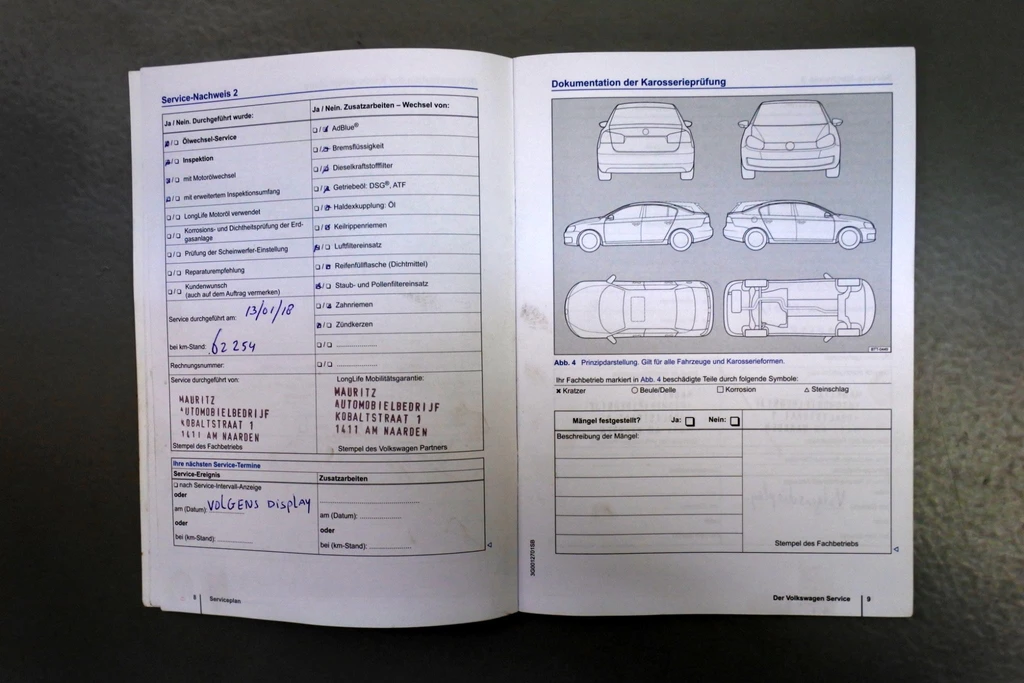 Service-Nachweis 2
Ja / Nein. Durchgeführt wurde:
Ölwechsel-Service
Inspektion
mit Motorölwechsel
mit erweitertem Inspektionsumfang
LongLife Motoröl verwendet
Korrosions- und Dichtheitsprüfung der Erd-
gasanlage
Prüfung der Scheinwerfer-Einstellung
Reparaturempfehlung
Kundenwunsch
(auch auf dem Auftrag vermerken)
Service durchgeführt am: 13/01/18
bei km-Stand: 62 254
Rechnungsnummer:
Service durchgeführt von:
MAURITZ
AUTOMOBIELBEDRIJF
KOBALTSTRAAT 1
1411 AM NAARDEN
Stempel des Fachbetriebs
Ja / Nein. Zusatzarbeiten – Wechsel von:
AdBlue®
Bremsflüssigkeit
Dieselkraftstofffilter
Getriebeöl: DSG®, ATF
Haldexkupplung: Öl
Keilrippenriemen
Luftfiltereinsatz
Reifenfüllflasche (Dichtmittel)
Staub- und Pollenfiltereinsatz
Zahnriemen
Zündkerzen
LongLife Mobilitätsgarantie:
MAURITZ
AUTOMOBIELBEDRIJF
KOBALTSTRAAT 1
1411 AM NAARDEN
Stempel des Volkswagen Partners
Ihre nächsten Service-Termine
Service-Ereignis
nach Service-Intervall-Anzeige
oder
am (Datum): VOLGENS DISPLAY
oder
bei (km-Stand):
Zusatzarbeiten
am (Datum):
oder
bei (km-Stand):
8 Serviceplan
Dokumentation der Karosserieprüfung
Abb. 4 Prinzipdarstellung. Gilt für alle Fahrzeuge und Karosserieformen.
Ihr Fachbetrieb markiert in Abb. 4 beschädigte Teile durch folgende Symbole:
× Kratzer ○ Beule/Delle □ Korrosion △ Steinschlag
Mängel festgestellt? Ja: □ Nein: □
Beschreibung der Mängel:
Stempel des Fachbetriebs
3G0012701SB
Der Volkswagen Service 9